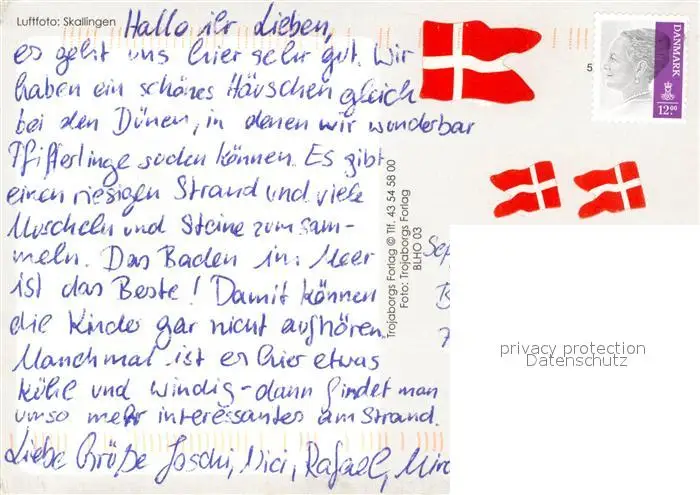 Luftfoto: Skallingen
Hallo ihr Lieben,
es geht uns hier sehr gut. Wir
haben ein schönes Häuschen gleich
bei den Dünen, in denen wir wunderbar
Pfifferlinge suchen können. Es gibt
einen riesigen Strand und viele
Muscheln und Steine zum sam-
meln. Das Baden im Meer
ist das Beste! Damit können
die Kinder gar nicht aufhören.
Manchmal ist es hier etwas
kühl und windig - dann findet man
umso mehr interessantes am Strand.
Liebe Grüße Joschi, Mici, Rafael,
Trojaborgs Forlag © Tlf. 43 54 58 00
Foto: Trojaborgs Forlag
BLHO 03
DANMARK
12.00
5
privacy protection
Datenschutz